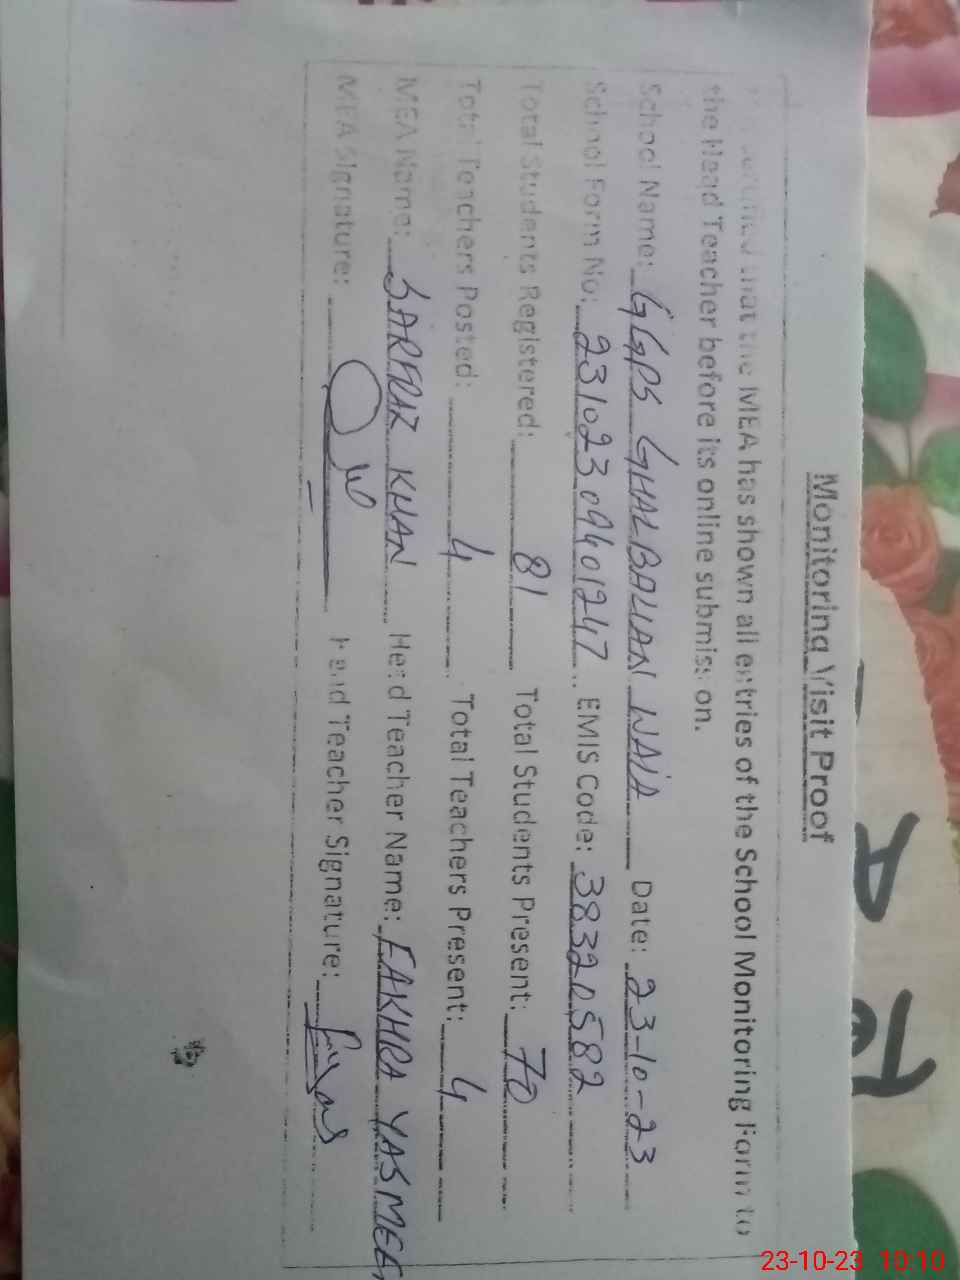 Monitoring Visit Proof
that the MEA has shown all entries of the School Monitoring Form to
the Head Teacher before its online submission.
School Name: GGPS GHALBALIAN WALA Date: 23-10-23
School Form No: 23102309401247 EMIS Code: 38320582
Total Students Registered: 81 Total Students Present: 70
Total Teachers Posted: 4 Total Teachers Present: 4
MEA Name: SARFRAZ KHAN Head Teacher Name: FAKHRA YASMEE
MEA Signature: Head Teacher Signature:
23-10-23 10:10